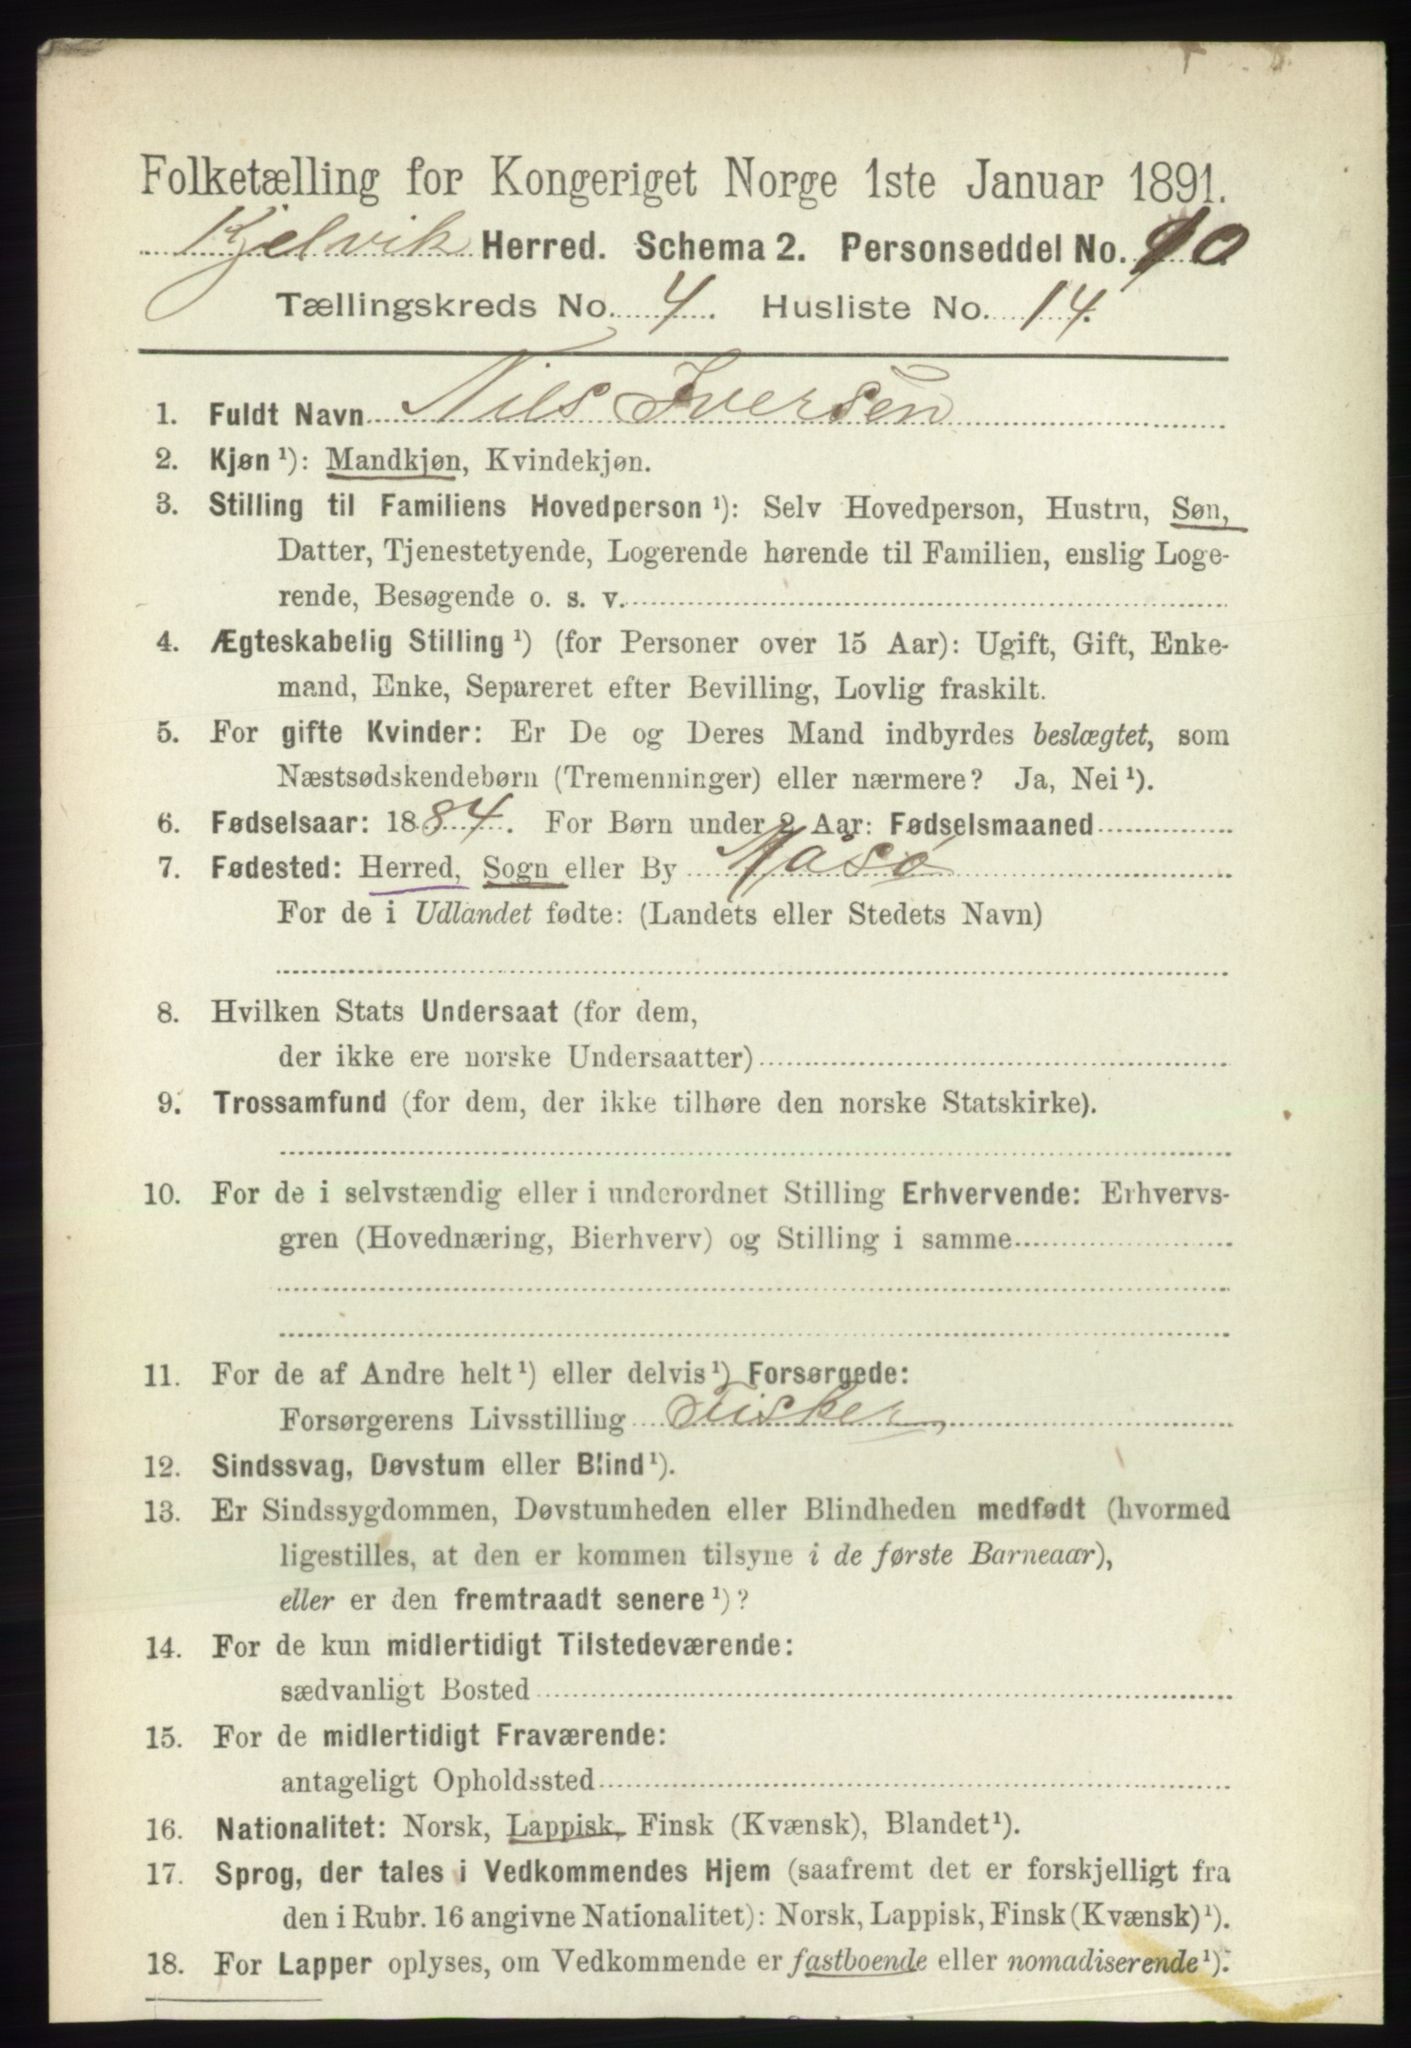 Folketælling for Kongeriget Norge 1ste Januar 1891.
Kjelvik Herred. Schema 2. Personseddel No. 10
Tællingskreds No. 4. Husliste No. 14.
1. Fuldt Navn Nils Iversen
2. Kjøn ¹): Mandkjøn, Kvindekjøn.
3. Stilling til Familiens Hovedperson ¹): Selv Hovedperson, Hustru, Søn,
Datter, Tjenestetyende, Logerende hørende til Familien, enslig Loge-
rende, Besøgende o. s. v.
4. Ægteskabelig Stilling ¹) (for Personer over 15 Aar): Ugift, Gift, Enke-
mand, Enke, Separeret efter Bevilling, Lovlig fraskilt.
5. For gifte Kvinder: Er De og Deres Mand indbyrdes beslægtet, som
Næstsødskendebørn (Tremenninger) eller nærmere? Ja, Nei ¹).
6. Fødselsaar: 1884. For Børn under 2 Aar: Fødselsmaaned
7. Fødested: Herred, Sogn eller By Måsø
For de i Udlandet fødte: (Landets eller Stedets Navn)
8. Hvilken Stats Undersaat (for dem,
der ikke ere norske Undersaatter)
9. Trossamfund (for dem, der ikke tilhøre den norske Statskirke).
10. For de i selvstændig eller i underordnet Stilling Erhvervende: Erhvervs-
gren (Hovednæring, Bierhverv) og Stilling i samme
11. For de af Andre helt ¹) eller delvis ¹) Forsørgede:
Forsørgerens Livsstilling Fisker
12. Sindssvag, Døvstum eller Blind ¹).
13. Er Sindssygdommen, Døvstumheden eller Blindheden medfødt (hvormed
ligestilles, at den er kommen tilsyne i de første Barneaar),
eller er den fremtraadt senere ¹)?
14. For de kun midlertidigt Tilstedeværende:
sædvanligt Bosted
15. For de midlertidigt Fraværende:
antageligt Opholdssted
16. Nationalitet: Norsk, Lappisk, Finsk (Kvænsk), Blandet ¹).
17. Sprog, der tales i Vedkommendes Hjem (saafremt det er forskjelligt fra
den i Rubr. 16 angivne Nationalitet): Norsk, Lappisk, Finsk (Kvænsk) ¹).
18. For Lapper oplyses, om Vedkommende er fastboende eller nomadiserende ¹).